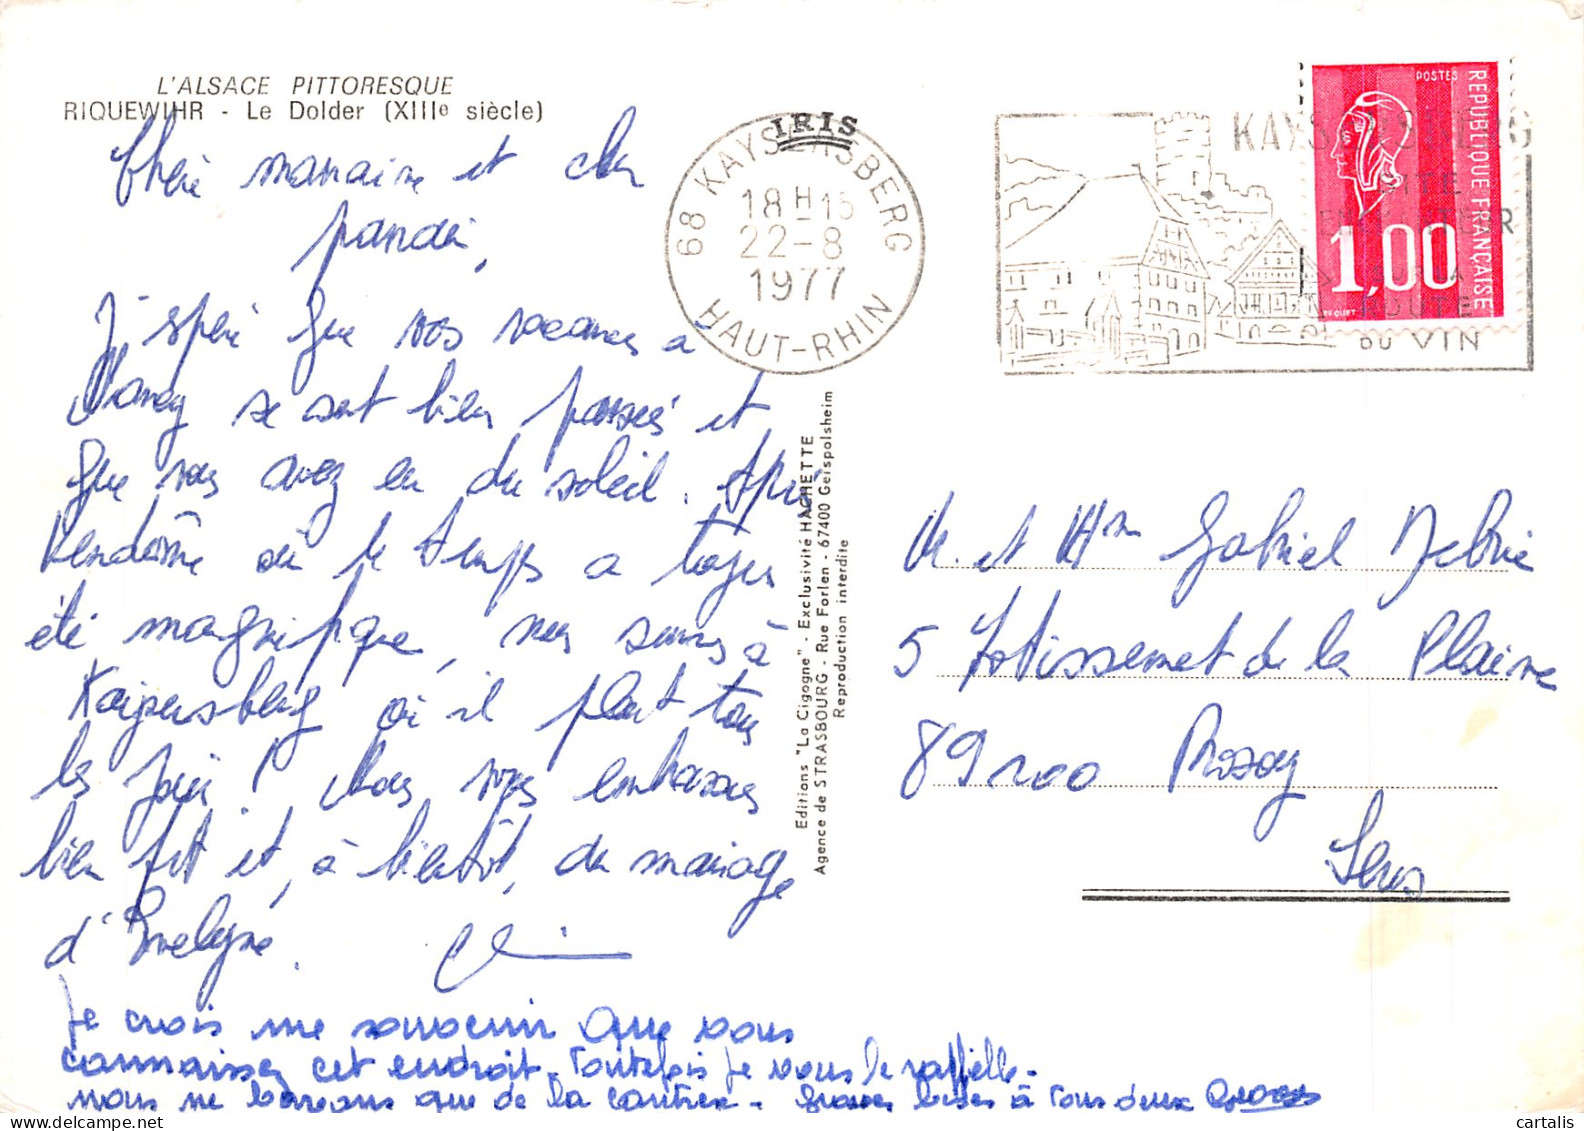 L'ALSACE PITTORESQUE
RIQUEWIHR - Le Dolder (XIIIe siècle)
Chère marraine et cher
parrain,
J'espère que vos vacances à
Nancy se sont bien passées et
que vous avez eu du soleil. Après
Vendôme où le temps a toujours
été magnifique, nous sommes à
Kaysersberg où il pleut tous
les jours ! Nous vous embrassons
bien fort et, à bientôt, au mariage
d'Evelyne.
Je crois me souvenir que vous
connaissez cet endroit - Toutefois je vous le rappelle -
nous ne buvons que de la contrex - Grosses bises à tous deux
IRIS
68 KAYSERSBERG
18H15
22-8
1977
HAUT-RHIN
KAYSERSBERG
SITE
ROUTE
DU VIN
POSTES
REPUBLIQUE FRANÇAISE
1,00
BEQUET
Editions "La Cigogne" - Exclusivité HACHETTE
Agence de STRASBOURG - Rue Forlen - 67400 Geispolsheim
Reproduction interdite
M. et Mme Gabriel Debrie
5 Lotissement de la Plaine
89100 Rosoy
Sens
cartalis